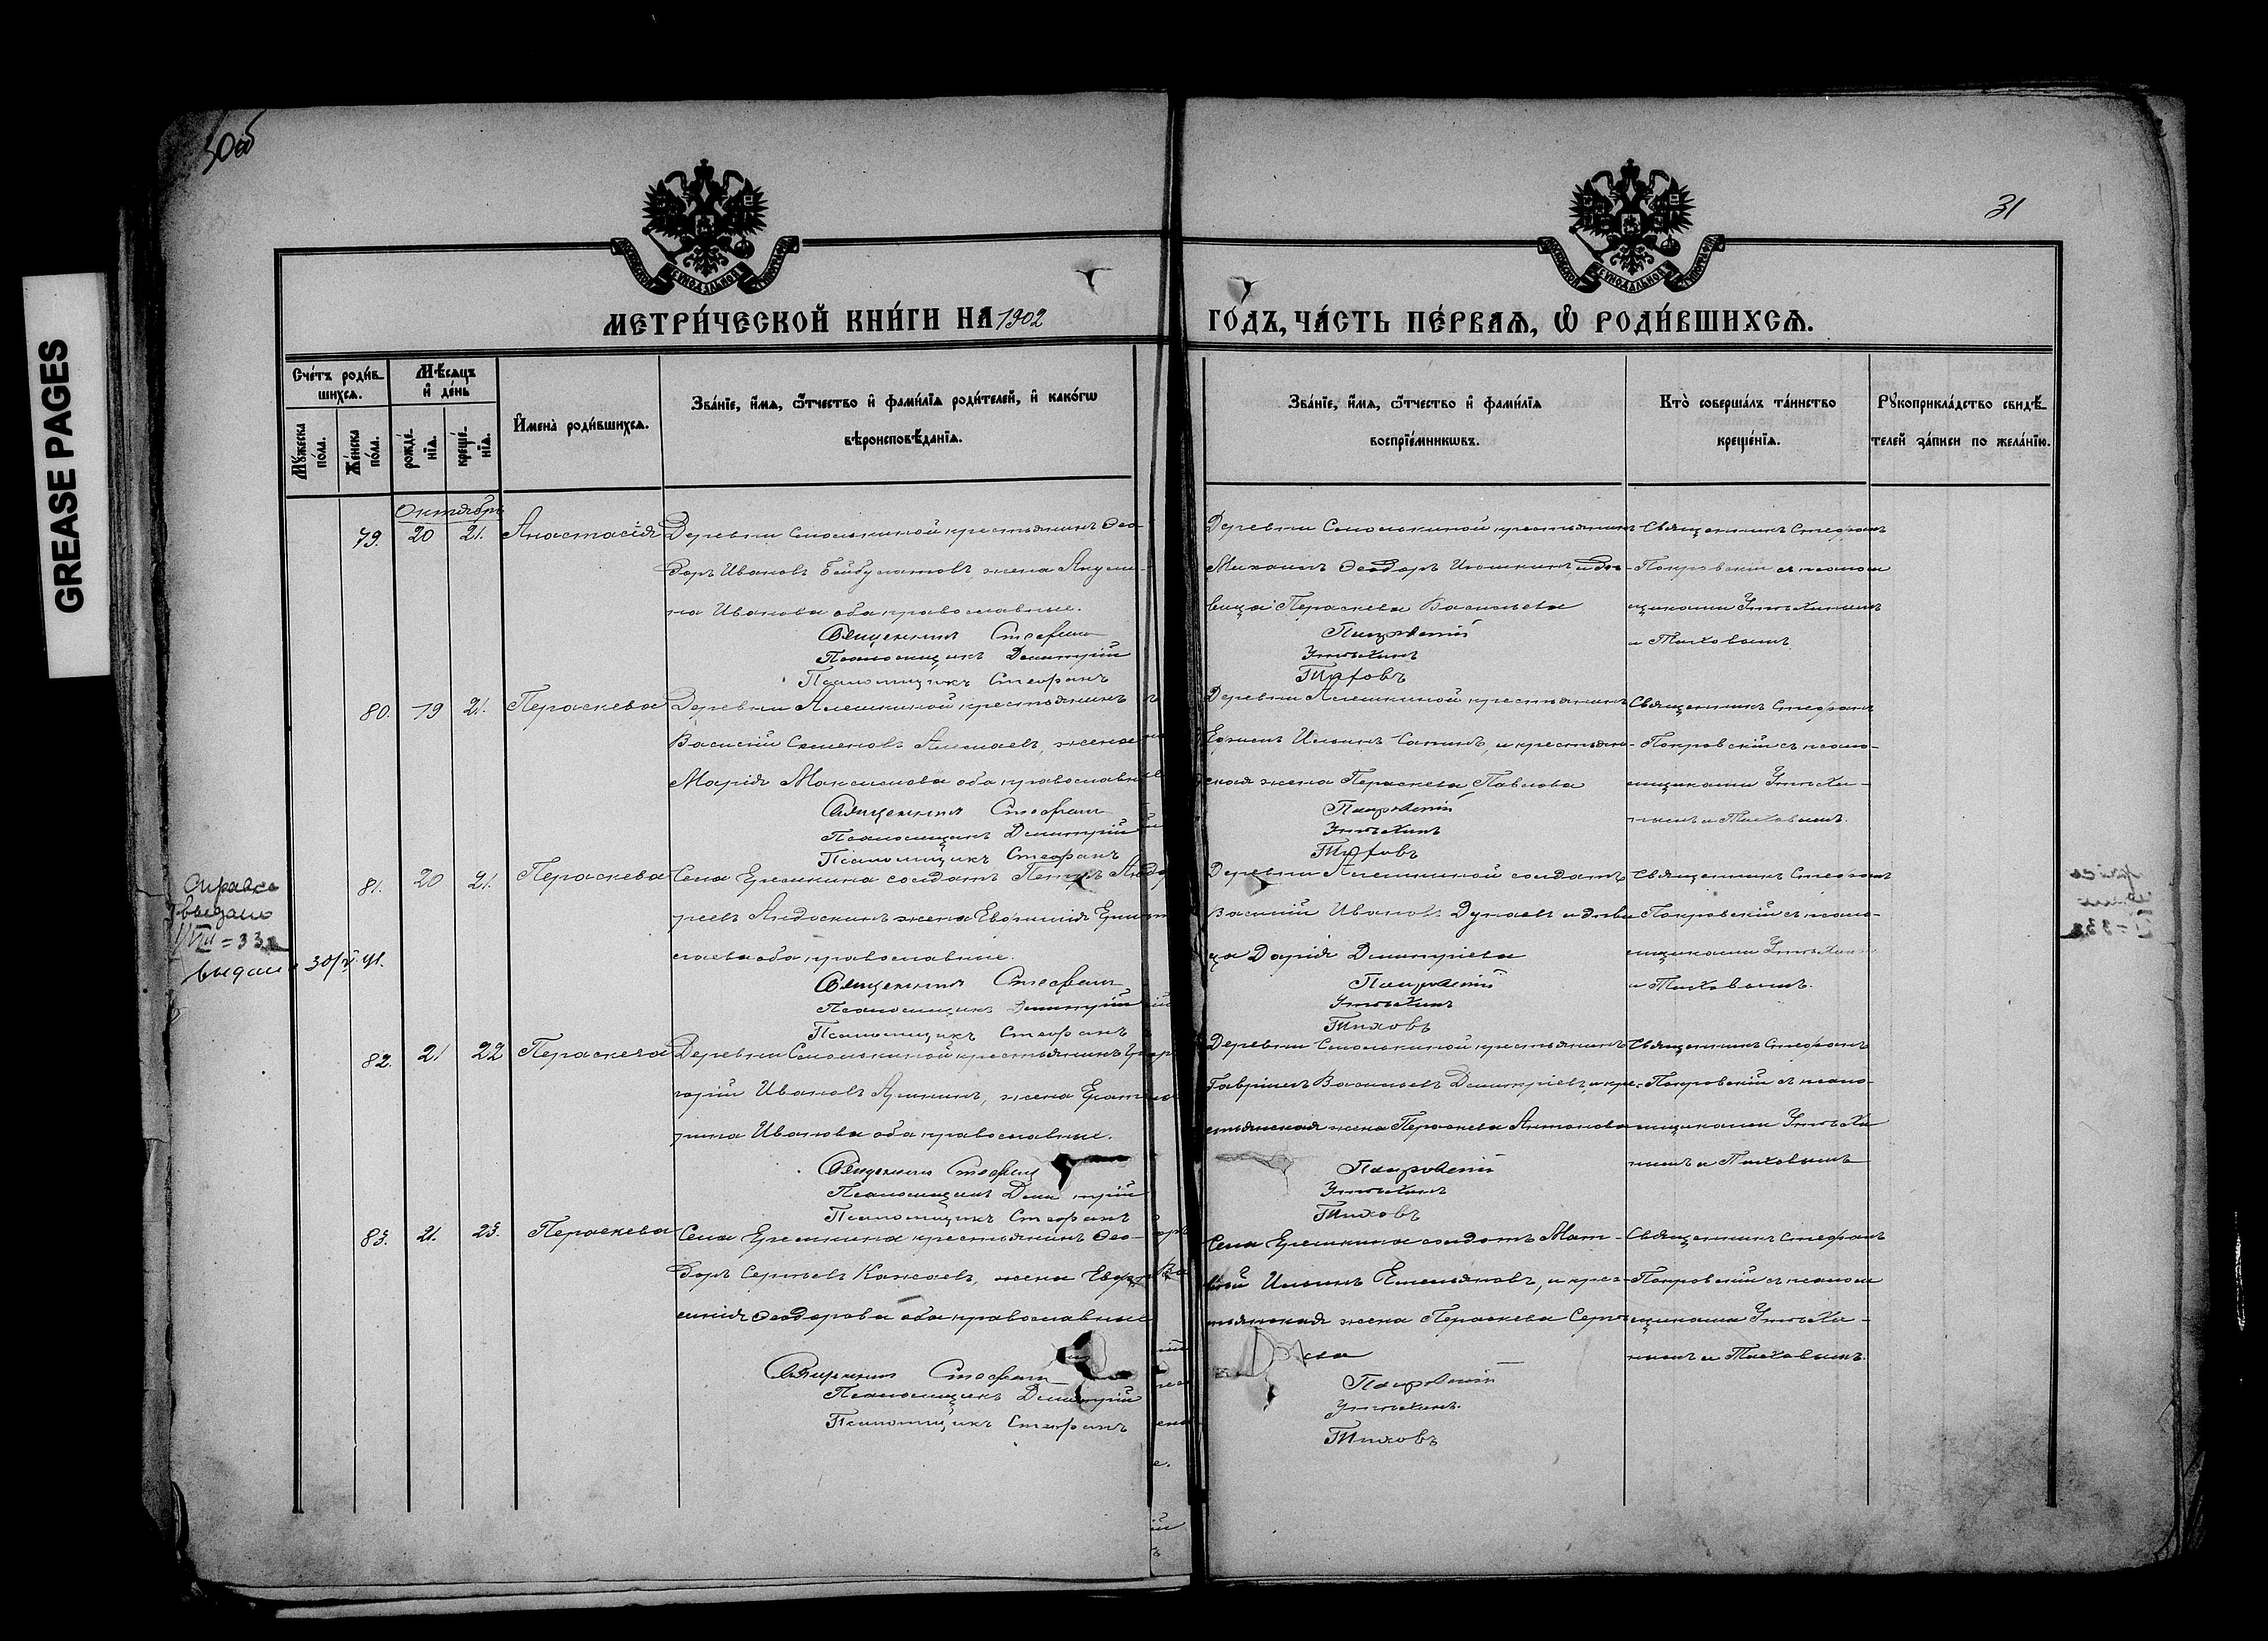 30об
31
GREASE PAGES
МЕТРИ́ЧЕСКОЙ КНИ́ГИ НА 1902
ГО́ДЪ, ЧА́СТЬ ПЕ́РВАѦ, Ѡ РОДИ́ВШИХСѦ.
Сче́тъ роди́в-
шихсѧ.
Мꙋ́жеска
по́ла.
Же́нска
по́ла.
Мѣ́сѧцъ
и҆ де́нь
рожде́-
нїѧ.
креще́-
нїѧ.
И҆мена̀ роди́вшихсѧ.
Зва́нїе, и҆́мѧ, ѻ҆́тчество и҆ фами́лїѧ роди́телей, и҆ како́гѡ
вѣроисповѣ́данїѧ.
Зва́нїе, и҆́мѧ, ѻ҆́тчество и҆ фами́лїѧ
воспрїе́мникѡвъ.
Кто̀ соверша́лъ та́инство
креще́нїѧ.
Рꙋкоприкла́дство свидѣ́-
телей за́писи по жела́нїю.
Октябрь
79.
20
21.
Анастасія
Деревни Смолькиной крестьянинъ Ѳео-
доръ Ивановъ Байбулатовъ, жена Акули-
на Иванова оба православные.
Священникъ Стефанъ
Псаломщикъ Димитрій
Псаломщикъ Стефанъ
Деревни Смолькиной крестьянинъ
Михаилъ Ѳеодоръ и дѣ-
вица Параскева Васильева
Покровскій
Утѣхинъ
Тиховъ
Священникъ Стефанъ
Покровскій съ псалом
щиками Утѣхинымъ
и Тиховымъ
80.
19
21.
Параскева
Деревни Алешкиной крестьянинъ
Василій Семеновъ жена
Марія Максимова оба православные
Священникъ Стефанъ
Псаломщикъ Димитрій
Псаломщикъ Стефанъ
Деревни Алешкиной крестьянинъ
Ильинъ и крестьян-
ская жена Параскева Павлова
Покровскій
Утѣхинъ
Тиховъ
Священникъ Стефанъ
Покровскій съ псалом-
щиками Утѣхи-
нымъ и Тиховымъ.
Справка
выдано
VIII = 33
выдан 30/V 41.
81.
20
21.
Параскева
Села Еремкина солдатъ Петръ Анд
реевъ жена Евфимія Ермо
лаева оба православные.
Священникъ Стефанъ
Псаломщикъ Димитрій
Псаломщикъ Стефанъ
Деревни Алешкиной солдатъ
Василій Ивановъ Дунаевъ и дѣви
ца Дарія Димитріева
Покровскій
Утѣхинъ
Тиховъ
Священникъ Стефанъ
Покровскій съ псалом-
щиками Утѣхин
и Тиховымъ.
82.
21
22
Параскева
Деревни Смолькиной крестьянинъ Гри
горій Ивановъ жена Екате
рина Иванова оба православные.
Священникъ Стефанъ
Псаломщикъ Димитрій
Псаломщикъ Стефанъ
Деревни Смолькиной крестьянинъ
Гавріилъ Васильевъ Димитріевъ, и кре-
стьянская жена Параскева Антонова
Покровскій
Утѣхинъ
Тиховъ
Священникъ Стефанъ
Покровскій съ псалом-
щиками Утѣхи
нымъ и Тиховымъ
83.
21.
23.
Параскева
Села Еремкина крестьянинъ Ѳео-
доръ Сергѣевъ жена Евфи
мія Ѳеодорова оба православные
Священникъ Стефанъ
Псаломщикъ Димитрій
Псаломщикъ Стефанъ
Села Еремкина солдатъ Мат-
вѣй Ильинъ Емельяновъ, и крес-
тьянская жена Параскева Сергѣ
ева
Покровскій
Утѣхинъ.
Тиховъ
Священникъ Стефанъ
Покровскій съ псалом
щиками Утѣхи-
нымъ и Тиховымъ.